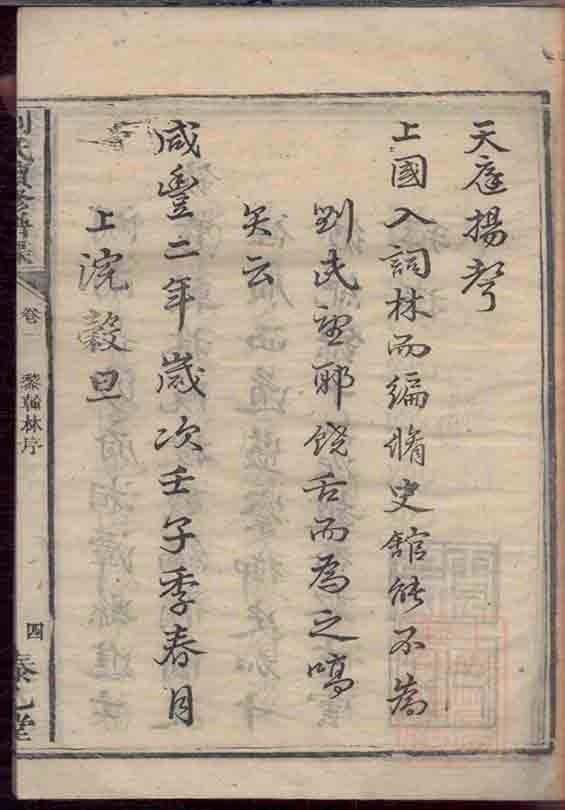 天庭揚聲
上國入詞林而編脩史館能不為
劉氏望耶饒舌而為之嚆
矢云
咸豐二年歲次壬子季春月
上浣穀旦
卷一
黎翰林序
四